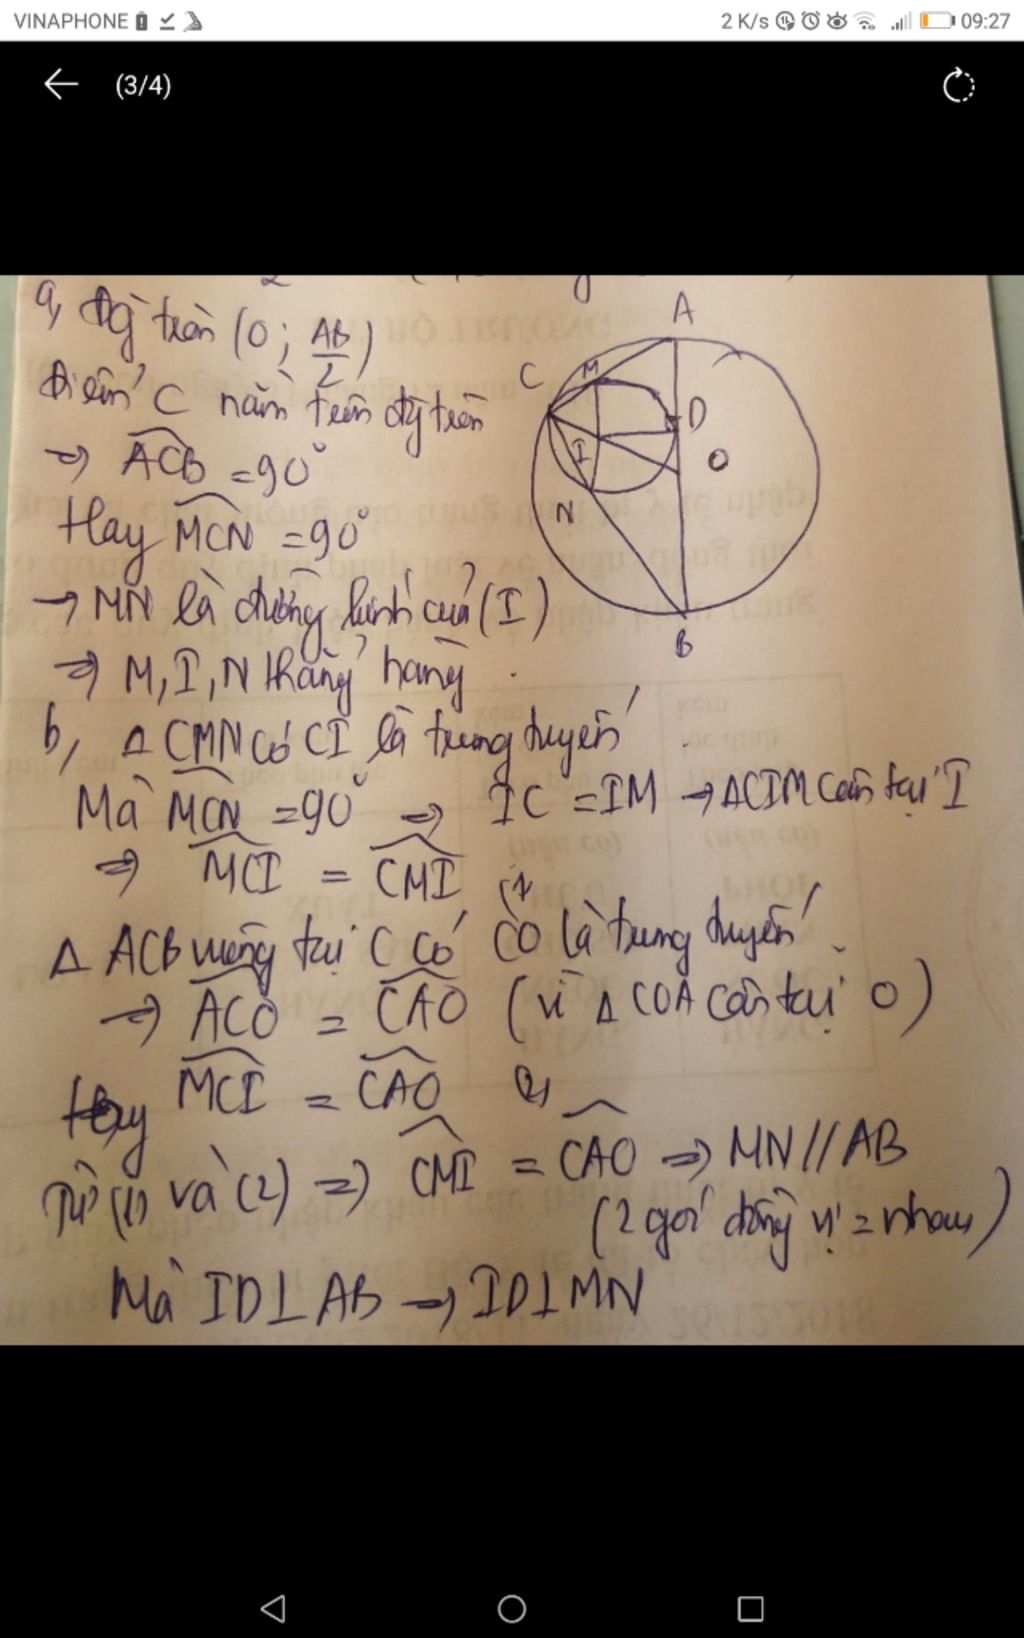 VINAPHONE
2 K/s
09:27
(3/4)
a, Đg tròn (O; AB/2)
Điểm C nằm trên đg tròn
=> ACB = 90°
Hay MCN = 90°
-> MN là đường kính của (I)
=> M, I, N thẳng hàng.
b, Δ CMN có CI là trung tuyến.
Mà MCN = 90° => IC = IM -> ΔCIM cân tại I
=> MCI = CMI (1)
Δ ACB vuông tại C có CO là trung tuyến.
=> ACO = CAO (vì Δ COA cân tại O)
Hay MCI = CAO (2)
Từ (1) và (2) => CMI = CAO => MN // AB
(2 góc đồng vị = nhau)
Mà ID ⊥ AB => ID ⊥ MN
A
C
M
D
I
O
N
B